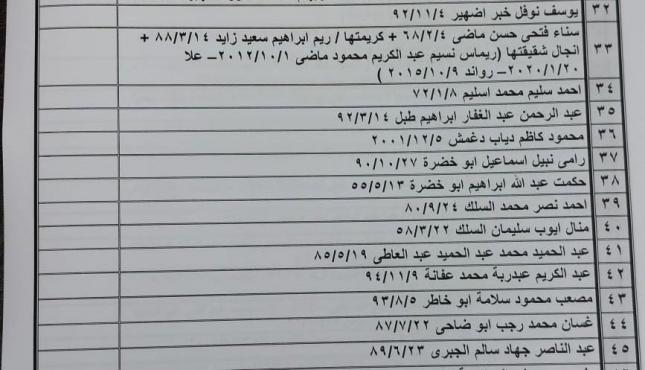 ٣٢ يوسف نوفل خبر اضهير ٩٢/١١/٤
سناء فتحى حسن ماضى ٦٨/٢/٤ + كريمتها / ريم ابراهيم سعيد زايد ٨٨/٣/١٤ +
٣٣ انجال شقيقتها (ريماس نسيم عبد الكريم محمود ماضى ٢٠١٢/١٠/١ – علا
٢٠٢٠/١/٢٠ – رواند ٢٠١٥/١٠/٩ )
٣٤ احمد سليم محمد اسليم ٧٢/١/٨
٣٥ عبد الرحمن عبد الغفار ابراهيم طبل ٩٢/٣/١٤
٣٦ محمود كاظم دياب دغمش ٢٠٠١/١٢/٥
٣٧ رامى نبيل اسماعيل ابو خضرة ٩٠/١٠/٢٧
٣٨ حكمت عبد الله ابراهيم ابو خضرة ٥٥/٥/١٣
٣٩ احمد نصر محمد السلك ٨٠/٩/٢٤
٤٠ منال ايوب سليمان السلك ٥٨/٣/٢٢
٤١ عبد الحميد محمد عبد الحميد عبد العاطى ٨٥/٥/١٩
٤٢ عبد الكريم عبدربة محمد عفانة ٩٤/١١/٩
٤٣ مصعب محمود سلامة ابو خاطر ٩٣/٨/٥
٤٤ غسان محمد رجب ابو ضاحى ٨٧/٧/٢٢
٤٥ عبد الناصر جهاد سالم الجبرى ٨٩/٦/٢٣